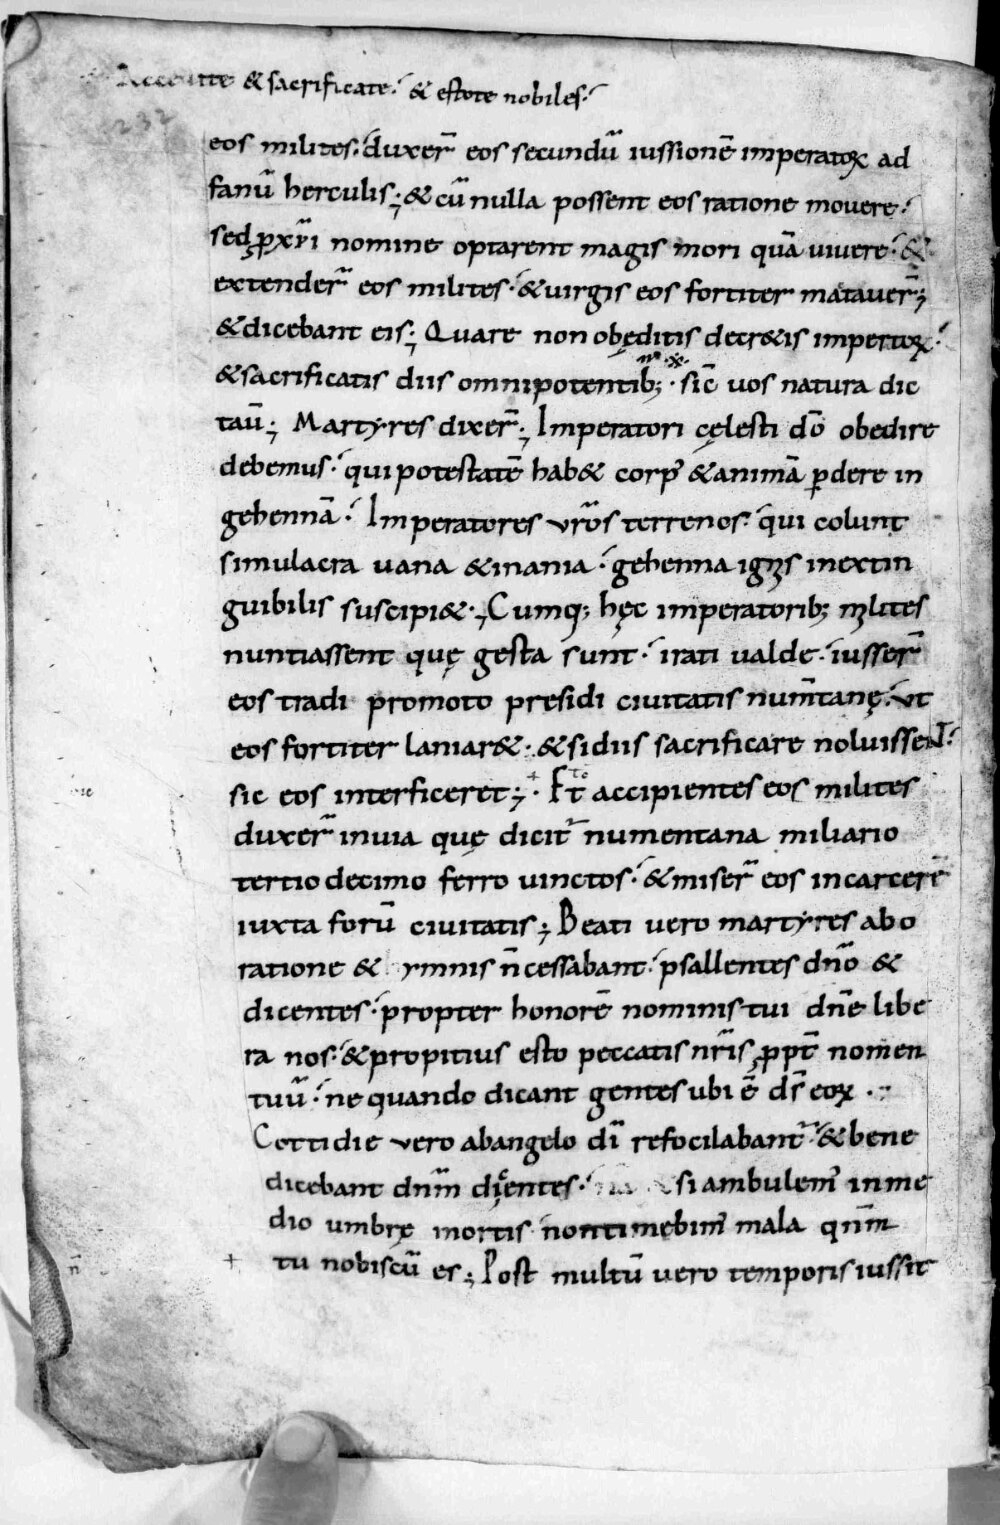 Accedite & sacrificate. & estote nobiles.
232
eos milites. duxer̄ eos secundū iussionē imperatoꝝ ad
fanū herculis; & cū nulla possent eos ratione movere.
sed ꝓ xp̄i nomine optarent magis mori quā vivere. &
extender̄ eos milites. & virgis eos fortiter mactaver̄;
& dicebant eis; Quare non obęditis decr&is impertoꝝ.
& sacrificatis diis omnipotentib; sic̄ uos natura dic
tau̅; Martyres dixer̄; Imperatori cęlesti dō obedire
debemus. qui potestatē hab& corp᾽ & animā ꝑdere in
gehennā. Imperatores vr̄os terrenos. qui colunt
simulacra uana & inania. gehenna ignis inextin
guibilis suscipi&; Cumq; hęc imperatorib; milites
nuntiassent quę gesta sunt. irati valde. iusser̄
eos tradi promoto presidi ciuitatis num̄tanę. ut
eos fortiter laniar&. & si diis sacrificare noluissent.
sic eos interficeret; Et accipientes eos milites
duxer̄ in via quę dicit᾽ numentana miliario
tertio decimo ferro uinctos. & miser̄ eos in carcerē
iuxta forū ciuitatis; Beati vero martyres ab o
ratione & ymnis n̄ cessabant. psallentes dn̄o &
dicentes. propter honorē nominis tui dn̄e libe
ra nos. & propitius esto peccatis nr̄is ꝓpt̄ nomen
tuū. ne quando dicant gentes ubi ē ds̄ eoꝝ.
Cottidie vero ab angelo dī refocilabant᾽. & bene
dicebant dn̄m dicentes. & si ambulem᾽ in me
dio umbrę mortis non timebim᾽ mala qn̄m
tu nobiscū es; Post multū vero temporis iussit